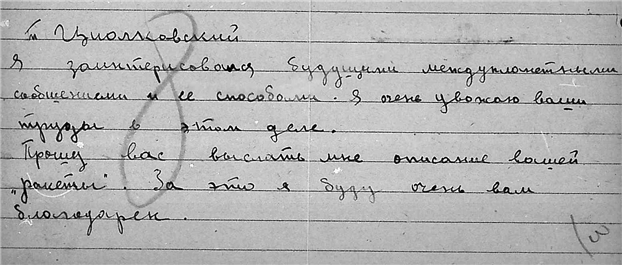 т Циолковский
Я заинтерисовался будущими междупланетными
сообщениями и ее способами. Я очень уважаю ваши
труды в этом деле.
Прошу вас выслать мне описание вашей
„ракеты". За это я буду очень вам
благодарен.